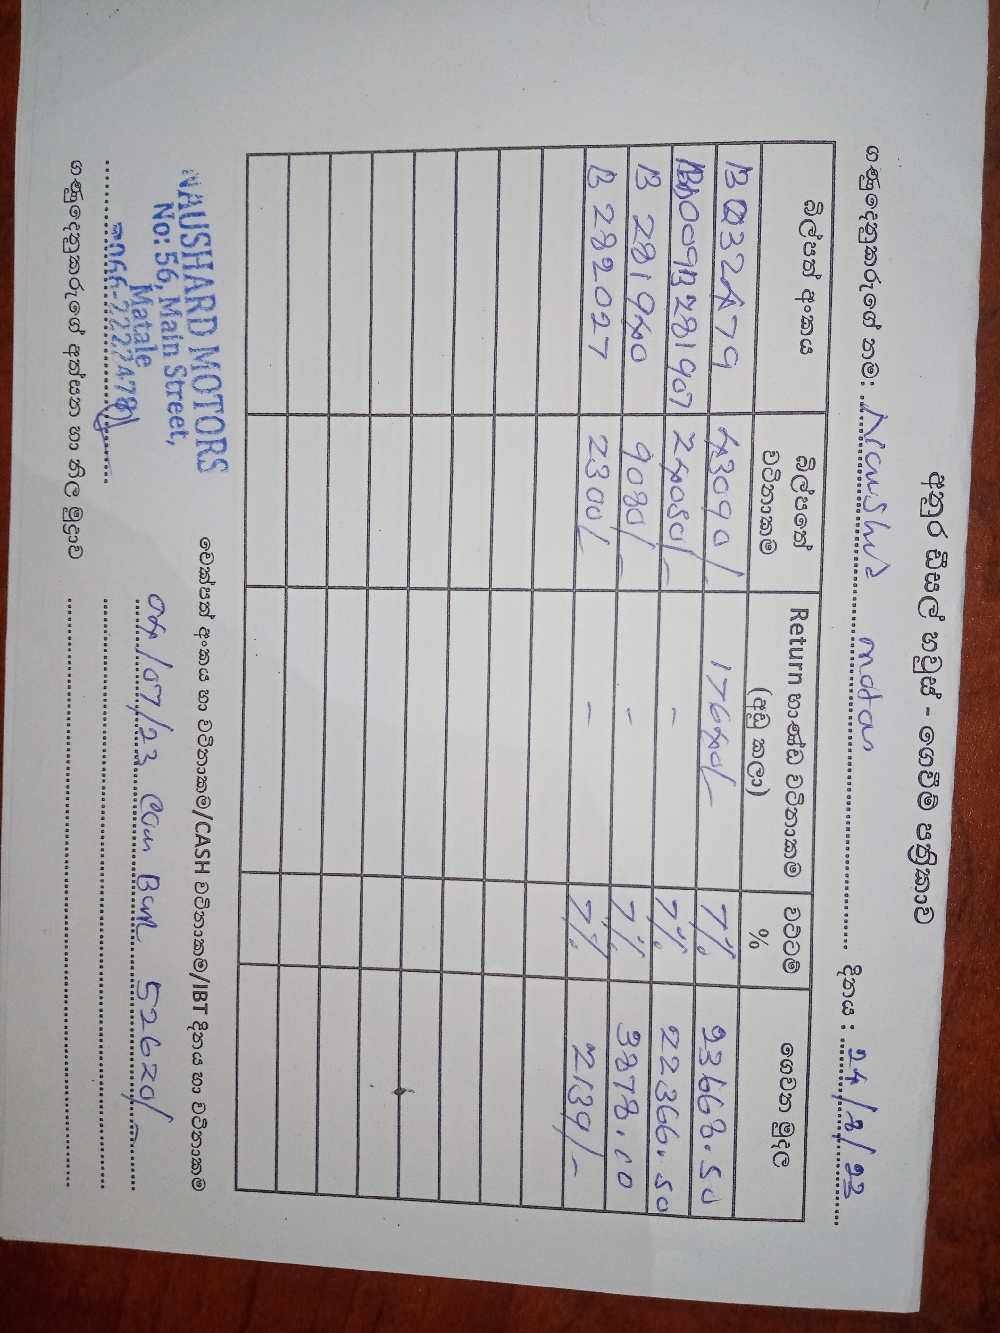 අනුර ඩීසල් හවුස් - ගෙවීම් පත්‍රිකාව
ගණුදෙනුකරුගේ නම: Naushad motors දිනය : 24/8/23
බිල්පත් අංකය බිල්පතේ වටිනාකම Return භාණ්ඩ වටිනාකම (අඩු කලා) වට්ටම් % ගෙවන මුදල
B0032479 43090/- 17640/- 7% 23668.50
B009B281907 24050/- - 7% 22366.50
B 281940 9080/- - 7% 3878.00
B 282027 2300/- - 7% 2139/-
චෙක්පත් අංකය හා වටිනාකම/CASH වටිනාකම/IBT දිනය හා වටිනාකම
04/07/23 52620/-
NAUSHARD MOTORS
No: 56, Main Street,
Matale
066-2227478
ගණුදෙනුකරුගේ අත්සන හා නිල මුද්‍රාව